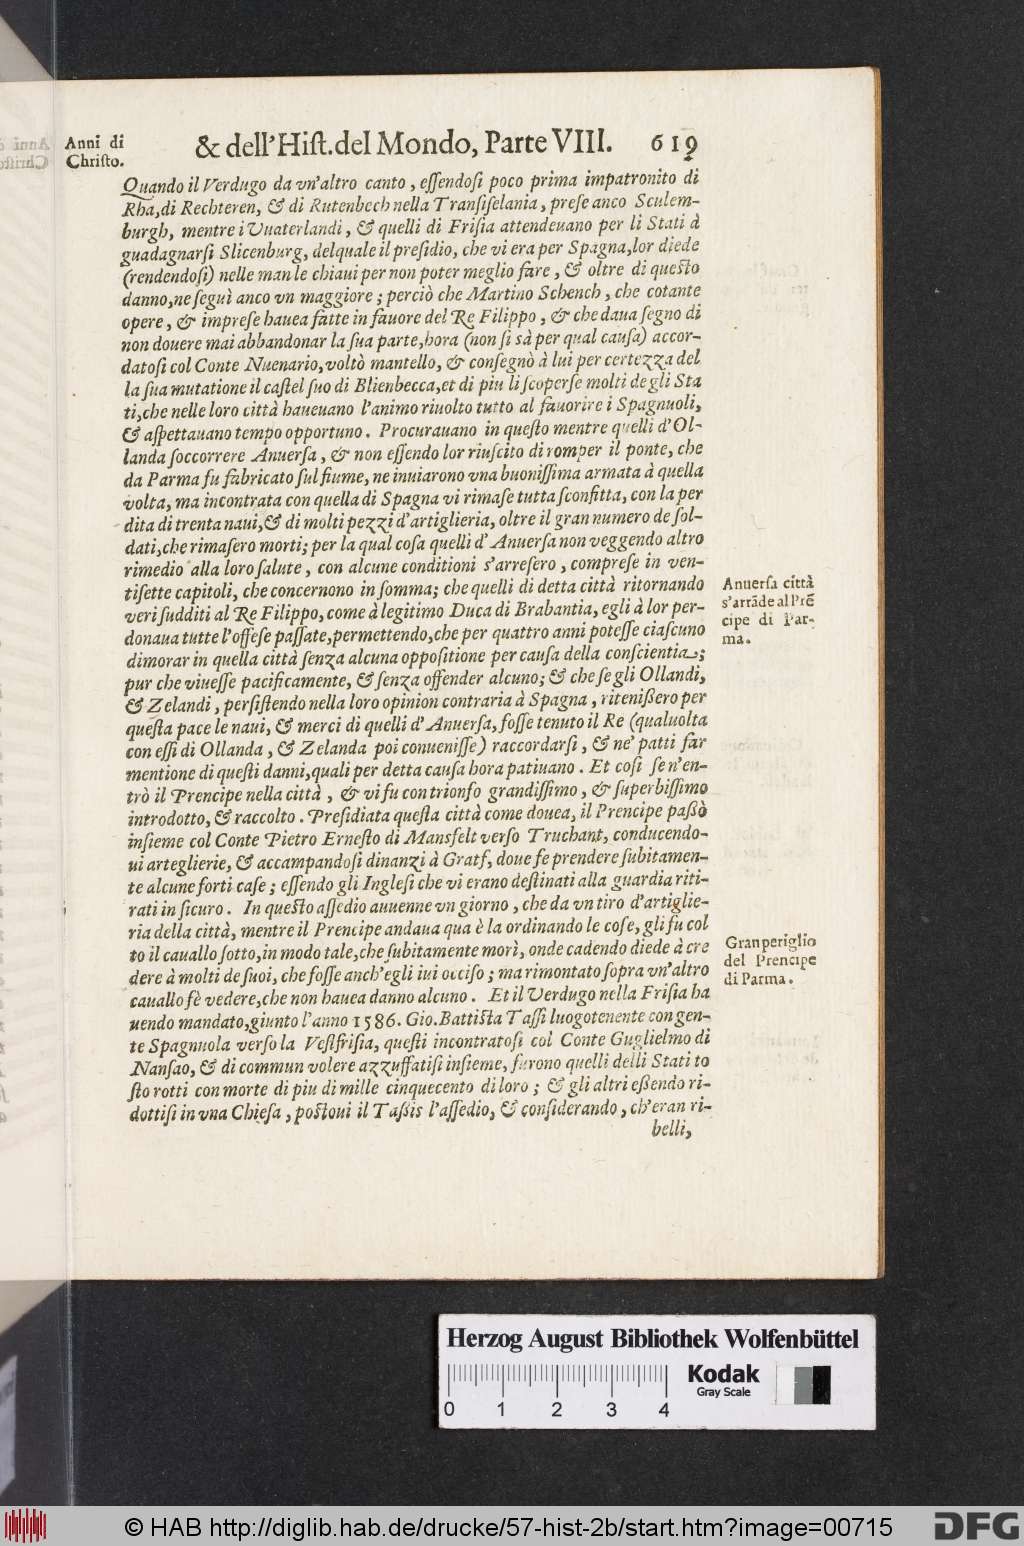 Anni di
Christo.
& dell'Hiſt. del Mondo, Parte VIII. 619
Quando il Verdugo da vn'altro canto, eſſendoſi poco prima impatronito di
Rha, di Rechteren, & di Rutenbech nella Tranſiſelania, preſe anco Sculem-
burgh, mentre i Vuaterlandi, & quelli di Friſia attendeuano per li Stati à
guadagnarſi Slicenburg, delquale il preſidio, che vi era per Spagna, lor diede
(rendendoſi) nelle man le chiaui per non poter meglio fare, & oltre di queſto
danno, ne ſeguì anco vn maggiore; perciò che Martino Schench, che cotante
opere, & impreſe hauea fatte in fauore del Re Filippo, & che daua ſegno di
non douere mai abbandonar la ſua parte, hora (non ſi sà per qual cauſa) accor-
datoſi col Conte Nuenario, voltò mantello, & conſegnò à lui per certezza del
la ſua mutatione il caſtel ſuo di Blienbecca, et di piu li ſcoperſe molti de gli Sta
ti, che nelle loro città haueuano l'animo riuolto tutto al fauorire i Spagnuoli,
& aſpettauano tempo opportuno. Procurauano in queſto mentre quelli d'Ol-
landa ſoccorrere Anuerſa, & non eſſendo lor riuſcito di romper il ponte, che
da Parma fu fabricato ſul fiume, ne inuiarono vna buoniſſima armata à quella
volta, ma incontrata con quella di Spagna vi rimaſe tutta ſconfitta, con la per
dita di trenta naui, & di molti pezzi d'artiglieria, oltre il gran numero de ſol-
dati, che rimaſero morti; per la qual coſa quelli d'Anuerſa non veggendo altro
rimedio alla loro ſalute, con alcune conditioni s'arreſero, compreſe in ven-
tiſette capitoli, che concernono in ſomma; che quelli di detta città ritornando
veri ſudditi al Re Filippo, come à legitimo Duca di Brabantia, egli à lor per-
donaua tutte l'offeſe paſſate, permettendo, che per quattro anni poteſſe ciaſcuno
dimorar in quella città ſenza alcuna oppoſitione per cauſa della conſcientia;
pur che viueſſe pacificamente, & ſenza offender alcuno; & che ſe gli Ollandi,
& Zelandi, perſiſtendo nella loro opinion contraria à Spagna, riteniſſero per
queſta pace le naui, & merci di quelli d'Anuerſa, foſſe tenuto il Re (qualuolta
con eſſi di Ollanda, & Zelanda poi conueniſſe) raccordarſi, & ne' patti far
mentione di queſti danni, quali per detta cauſa hora patiuano. Et coſi ſe n'en-
trò il Prencipe nella città, & vi fu con trionfo grandiſſimo, & ſuperbiſſimo
introdotto, & raccolto. Preſidiata queſta città come douea, il Prencipe paſſò
inſieme col Conte Pietro Erneſto di Mansfelt verſo Truchant, conducendo-
ui arteglierie, & accampandoſi dinanzi à Gratf, doue fe prendere ſubitamen-
te alcune forti caſe; eſſendo gli Ingleſi che vi erano deſtinati alla guardia riti-
rati in ſicuro. In queſto aſſedio auuenne vn giorno, che da vn tiro d'artiglie-
ria della città, mentre il Prencipe andaua qua è la ordinando le coſe, gli fu col
to il cauallo ſotto, in modo tale, che ſubitamente morì, onde cadendo diede à cre
dere à molti de ſuoi, che foſſe anch'egli iui occiſo; ma rimontato ſopra vn'altro
cauallo fè vedere, che non hauea danno alcuno. Et il Verdugo nella Friſia ha
uendo mandato, giunto l'anno 1586. Gio. Battiſta Taſſi luogotenente con gen-
te Spagnuola verſo la Veſtfriſia, queſti incontratoſi col Conte Guglielmo di
Nanſao, & di commun volere azzuffatiſi inſieme, furono quelli delli Stati to
ſto rotti con morte di piu di mille cinquecento di loro; & gli altri eſſendo ri-
dottiſi in vna Chieſa, poſtoui il Taſſis l'aſſedio, & conſiderando, ch'eran ri-
belli,
Anuerſa città
s'arrāde al Prē
cipe di Par-
ma.
Gran periglio
del Prencipe
di Parma.
Herzog August Bibliothek Wolfenbüttel
Kodak
Gray Scale
0 1 2 3 4
© HAB http://diglib.hab.de/drucke/57-hist-2b/start.htm?image=00715
DFG